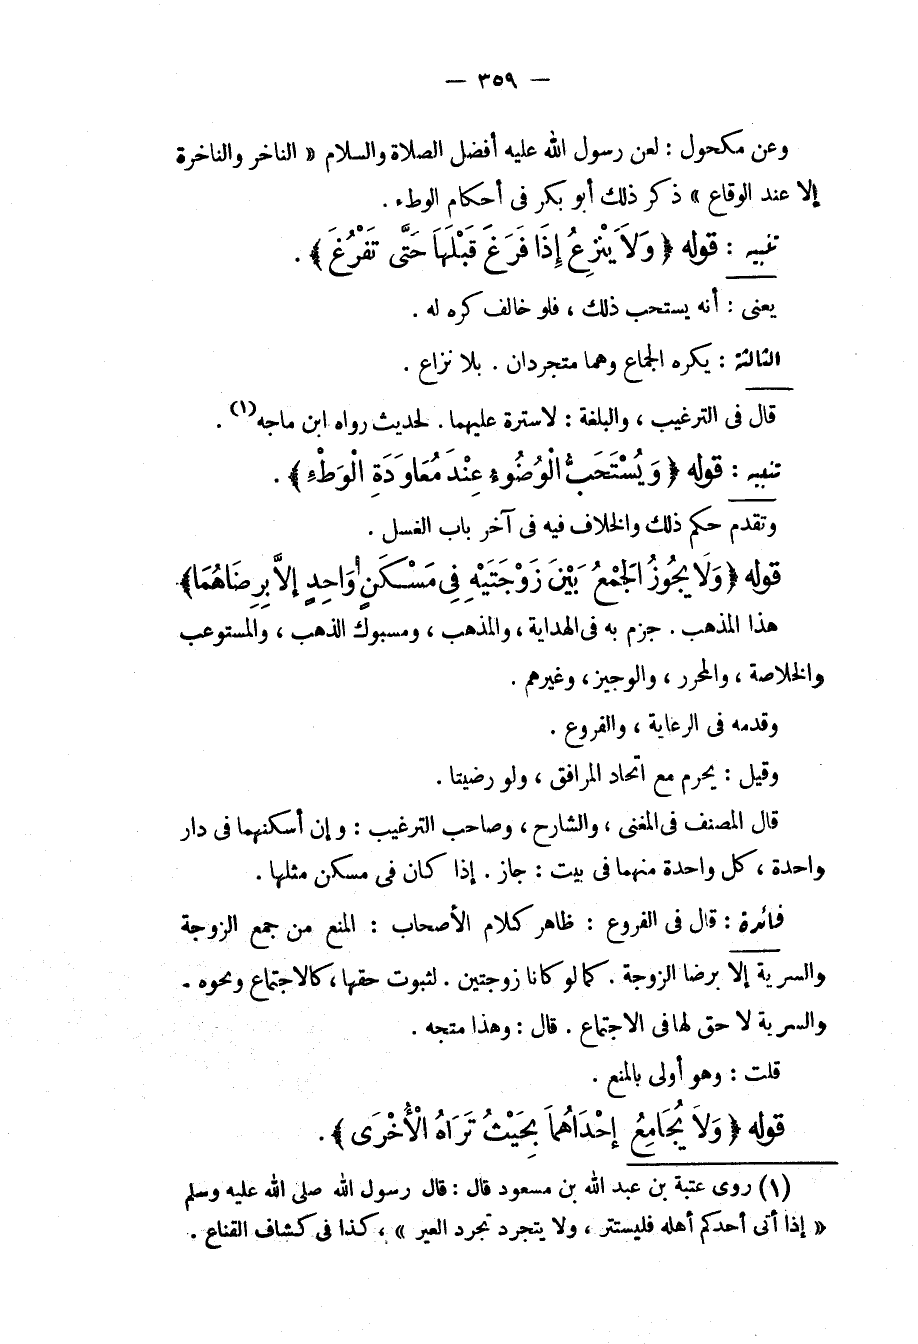 — ٣٥٩ —
وعن مكحول : لعن رسول الله عليه أفضل الصلاة والسلام « الناخر والناخرة
إلا عند الوقاع » ذكر ذلك أبو بكر فى أحكام الوطء .
تنبيه : قوله ﴿ وَلاَ يَنْزِعُ إِذَا فَرَغَ قَبْلَهَا حَتَّى تَفْرُغَ ﴾ .
يعنى : أنه يستحب ذلك ، فلو خالف كره له .
الثالثة : يكره الجماع وهما متجردان . بلا نزاع .
قال فى الترغيب ، والبلغة : لا سترة عليهما . لحديث رواه ابن ماجه(١) .
تنبيه : قوله ﴿ وَيُسْتَحَبُّ الْوُضُوء عِنْدَ مُعَاوَدَةِ الْوَطْءِ ﴾ .
وتقدم حكم ذلك والخلاف فيه فى آخر باب الغسل .
قوله ﴿ وَلَا يَجُوزُ الجَمْعُ بَيْنَ زَوْجَتَيْهِ فِى مَسْكَنٍ وَاحِدٍ إلاَّ بِرِضَاهُمَا ﴾
هذا المذهب . جزم به فى الهداية ، والمذهب ، ومسبوك الذهب ، والمستوعب
والخلاصة ، والمحرر ، والوجيز ، وغيرهم .
وقدمه فى الرعاية ، والفروع .
وقيل : يحرم مع اتحاد المرافق ، ولو رضيتا .
قال المصنف فى المغنى ، والشارح ، وصاحب الترغيب : وإن أسكنهما فى دار
واحدة ، كل واحدة منهما فى بيت : جاز . إذا كان فى مسكن مثلها .
فائدة : قال فى الفروع : ظاهر كلام الأصحاب : المنع من جمع الزوجة
والسرية إلا برضا الزوجة . كما لو كانا زوجتين . لثبوت حقها ، كالاجتماع ونحوه .
والسرية لا حق لها فى الاجتماع . قال : وهذا متجه .
قلت : وهو أولى بالمنع .
قوله ﴿ وَلاَ يُجَامِعُ إحْدَاهُمَا بِحَيْثُ تَرَاهُ الْأُخْرَى ﴾ .
(١) روى عتبة بن عبد الله بن مسعود قال : قال رسول الله صلى الله عليه وسلم
« إذا أتى أحدكم أهله فليستتر ، ولا يتجرد تجرد العير » ، كذا فى كشاف القناع .